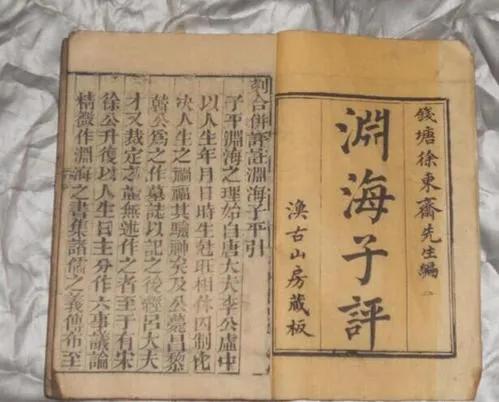 錢塘徐東齋先生編
淵海子評
漁古山房藏板
刻合併評註淵海子平引
子平淵海之理始自唐大夫李公虛中
以人生年月日時生尅旺相休囚制化
决人生之禍福其驗神矣及公薨昌黎
韓公爲之作墓誌以記之後經呂大夫
才又裁定之並無述作之者至于有宋
徐公升復以人生日主分作六事議論
精微作淵海之書集諸儒之義傳布至